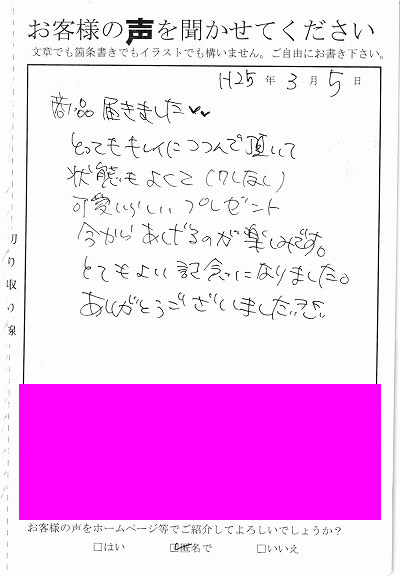 お客様の声を聞かせてください
文章でも箇条書きでもイラストでも構いません。ご自由にお書き下さい。
H25年3月5日
商品届きました♥♥
とってもキレイにつつんで頂いて
状態もよくて(クしなし)
可愛いらしいプレゼント
今からあげるのが楽しみです。
とてもよい記念になりました。
ありがとうございました
切り取り線
お客様の声をホームページ等でご紹介してよろしいでしょうか？
□はい □匿名で □いいえ